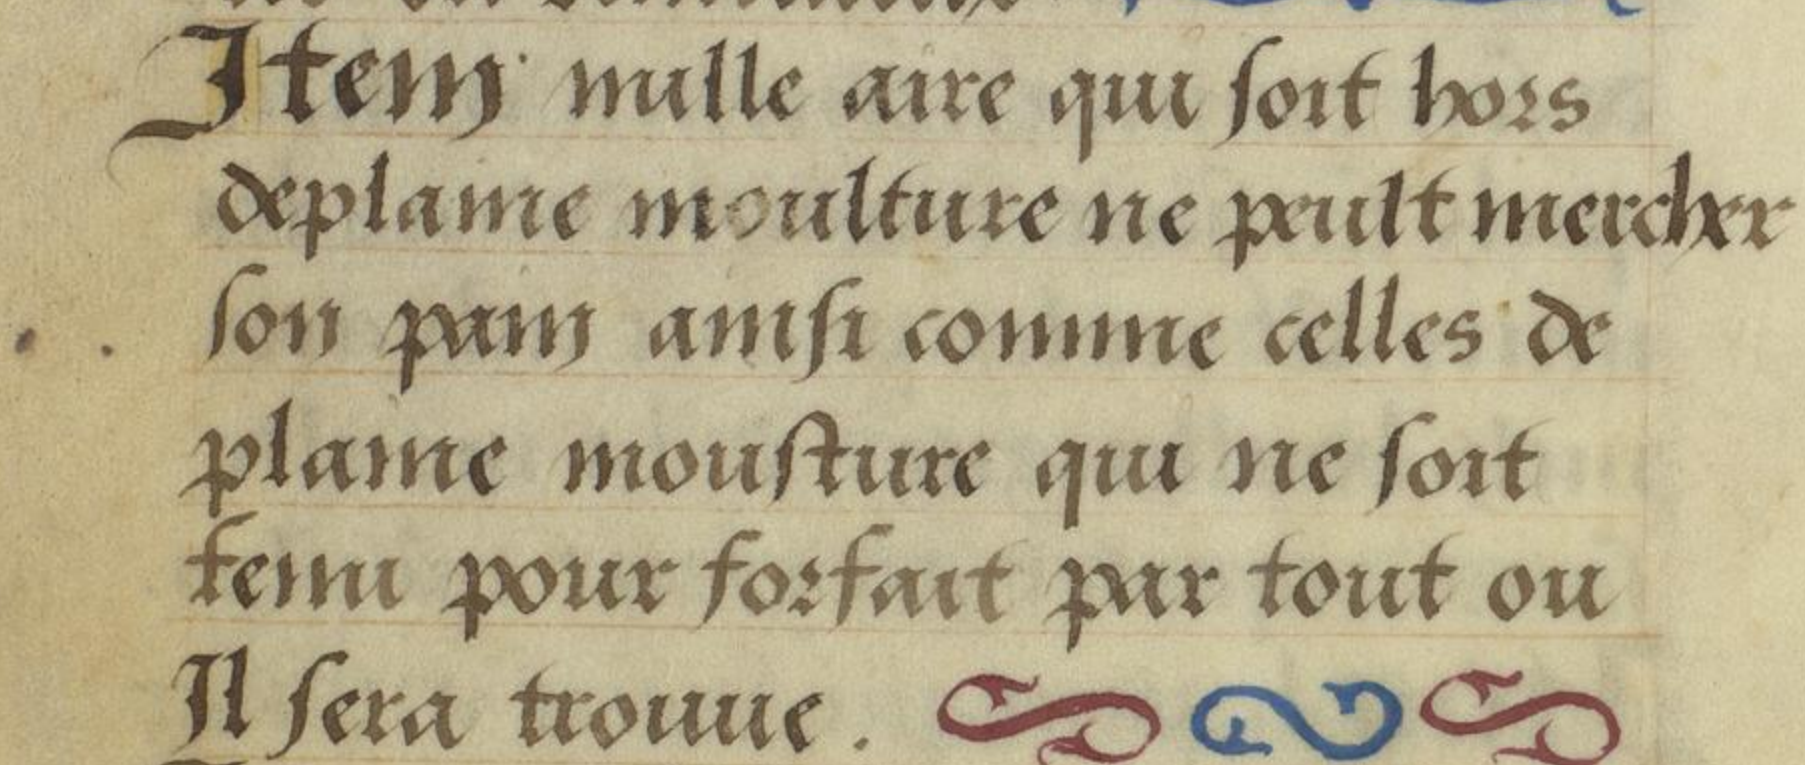 Item nulle aire qui soit hors
deplaine moulture ne peult mercher
son pain ainsi comme celles de
plaine mousture qui ne soit
tenu pour forfait par tout ou
Il sera trouue .